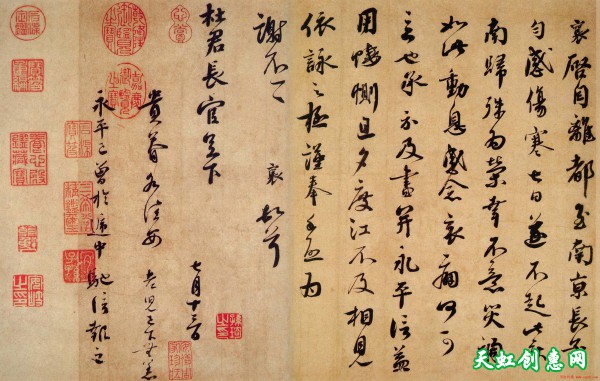 襄啓自離都至南京長子
勻感傷寒七日遂不起此
南歸殊為榮幸不意災禍
如此動息感念哀痛何可
言也承示及書并永平信益
用悽惻旦夕度江不及相見
依詠之極謹奉手啓為
謝不一一 襄頓首
杜君長官足下
七月十三日
貴眷各佳安 老兒已下無恙
永平已曾於遞中馳信報之
天虹创意网